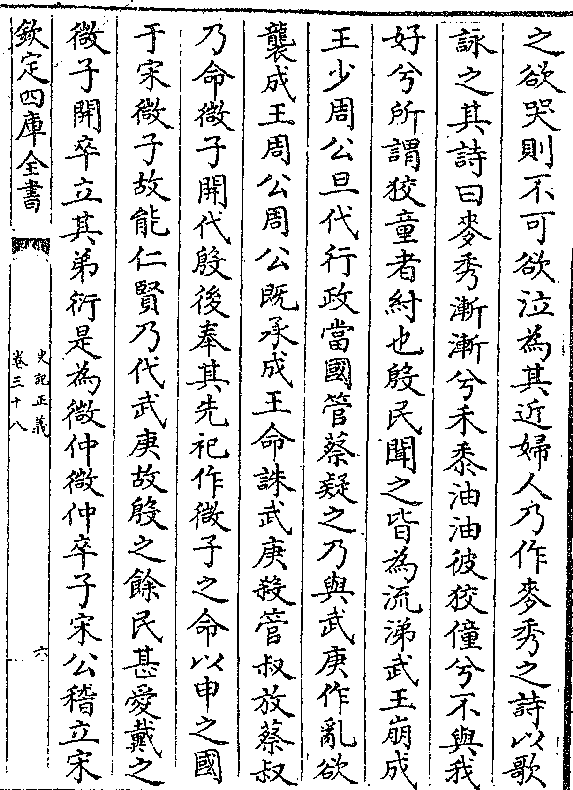 之欲哭則不可欲泣為其近婦人乃作麥秀之詩以歌
詠之其詩曰麥秀漸漸兮禾黍油油彼狡僮兮不與我
好兮所謂狡童者紂也殷民聞之皆為流涕武王崩成
王少周公旦代行政當國管蔡疑之乃與武庚作亂欲
襲成王周公周公既承成王命誅武庚殺管叔放蔡叔
乃命微子開代殷後奉其先祀作微子之命以申之國
于宋微子故能仁賢乃代武庚故殷之餘民甚愛戴之
微子開卒立其弟衍是為微仲微仲卒子宋公稽立宋
欽定四庫全書
史記正義
卷三十八
六